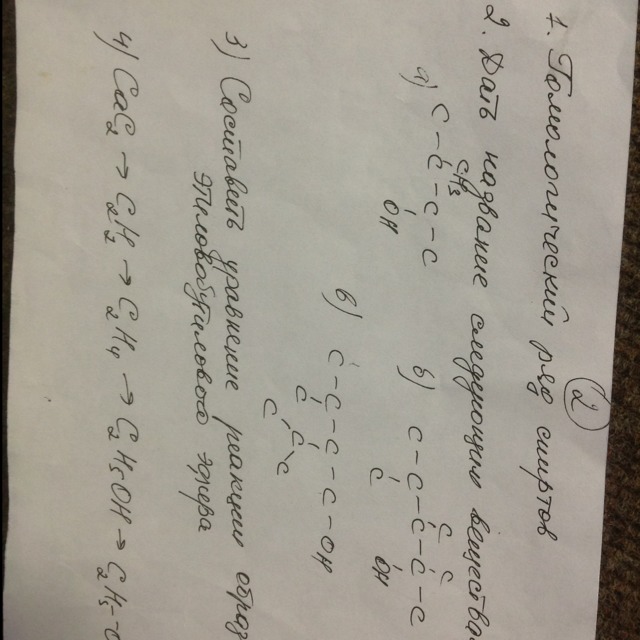 2
1. Гомологический ряд спиртов
2. Дать название следующим веществам
CH3
а) C – C – C – C
OH
C C
б) C – C – C – C – C
C OH
в) C – C – C – C – OH
C
C – C – C
3) Составить уравнение реакции образ
этилобутилового эфира
4) CaC2 → C2H2 → C2H4 → C2H5OH → C2H5-O